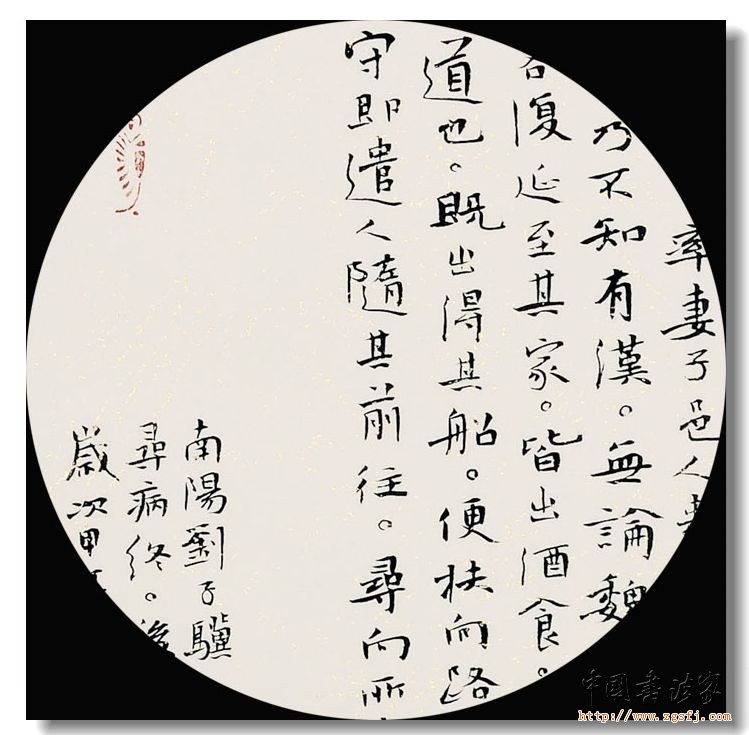 率妻子邑人
乃不知有漢。無論魏
復延至其家。皆出酒食。
道也。既出得其船。便扶向路
守即遣人隨其前往。尋向所
南陽劉子驥
尋病終。後
歲次甲
中国書法家
http://www.zgsfj.com